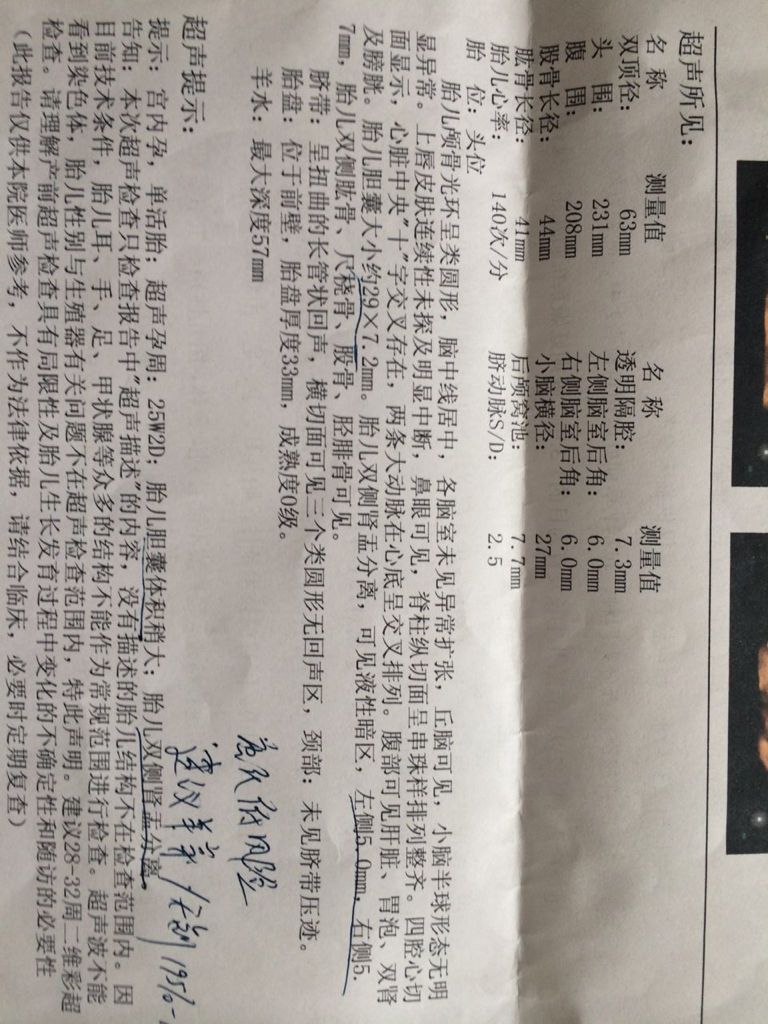 超声所见：
名 称 测量值 名 称 测量值
双顶径： 63mm 透明隔腔： 7.3mm
头 围： 231mm 左侧脑室后角： 6.0mm
腹 围： 208mm 右侧脑室后角： 6.0mm
股骨长径： 44mm 小脑横径： 27mm
肱骨长径： 41mm 后颅窝池： 7.7mm
胎儿心率： 140次/分 脐动脉S/D： 2.5
胎 位：头位
胎儿颅骨光环呈类圆形，脑中线居中，各脑室未见异常扩张，丘脑可见，小脑半球形态无明
显异常。上唇皮肤连续性未探及明显中断，鼻眼可见，脊柱纵切面呈串珠样排列整齐。四腔心切
面显示，心脏中央"十"字交叉存在，两条大动脉在心底呈交叉排列。腹部可见肝脏、胃泡、双肾
及膀胱。胎儿胆囊大小约29×7.2mm。胎儿双侧肾盂分离，可见液性暗区，左侧5.0mm，右侧5.
7mm，胎儿双侧肱骨、尺桡骨、股骨、胫腓骨可见。
脐带：呈扭曲的长管状回声，横切面可见三个类圆形无回声区，颈部：未见脐带压迹。
胎盘：位于前壁，胎盘厚度33mm，成熟度0级。
羊水：最大深度57mm
超声提示：
提示：宫内孕，单活胎；超声孕周：25W2D；胎儿胆囊体积稍大；胎儿双侧肾盂分离。
告知：本次超声检查只检查报告中"超声描述"的内容，没有描述的胎儿结构不在检查范围内。因
目前技术条件，胎儿耳、手、足、甲状腺等众多的结构不能作为常规范围进行检查。超声波不能
看到染色体，胎儿性别与生殖器有关问题不在超声检查范围内，特此声明。建议28-32周二维彩超
检查。请理解产前超声检查具有局限性及胎儿生长发育过程中变化的不确定性和随访的必要性
（此报告仅供本院医师参考，不作为法律依据，请结合临床，必要时定期复查）
风险
建议羊穿